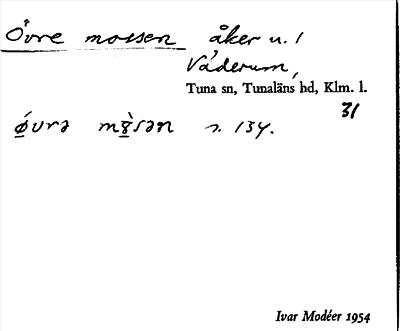 Övre mossen åker u. 1
Väderum,
Tuna sn, Tunaläns hd, Klm. l.
31
s. 134.
Ivar Modéer 1954